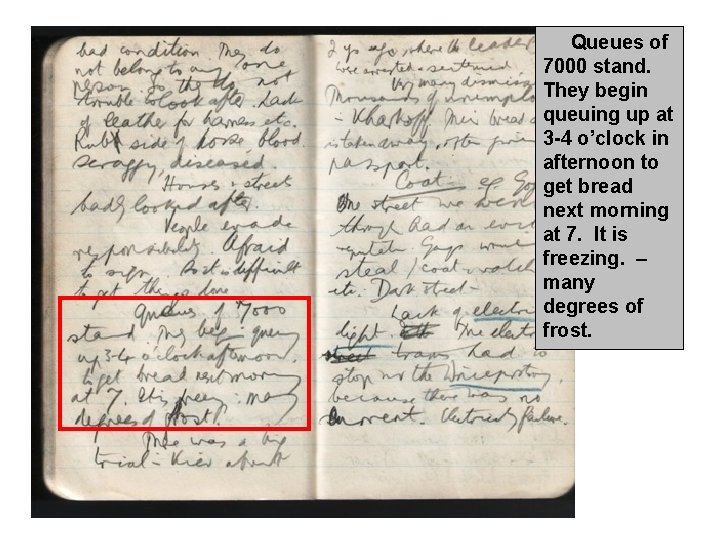 bad condition. They do
not belong to any one
person so they do not
trouble to look after. Lack
of leather for harness etc.
Rubs side of horse, blood.
scraggy, diseased.
Houses & street
badly looked after.
People evade
responsibility. Afraid
to sign. So it is difficult
to get things done
Queues of 7000
stand. They begin queuing
up 3-4 o'clock afternoon.
to get bread next morning
at 7. It is freezing: many
degrees of frost.
There was a big
trial - Kiev about
2 yrs ago, where the leader
were arrested & sentenced.
Very many dismiss
Thousands of unemplo
- Kharkoff. Their bread
is taken away, often
passport.
Coat. eg
One street we were
though had an
Gangs
steal / coat - watch
etc. Dark street -
Lack of electri
light. The electri
street trams had to
stop nr the
because there was no
current. Electricity failure.
Queues of
7000 stand.
They begin
queuing up at
3-4 o’clock in
afternoon to
get bread
next morning
at 7.  It is
freezing.  –
many
degrees of
frost.